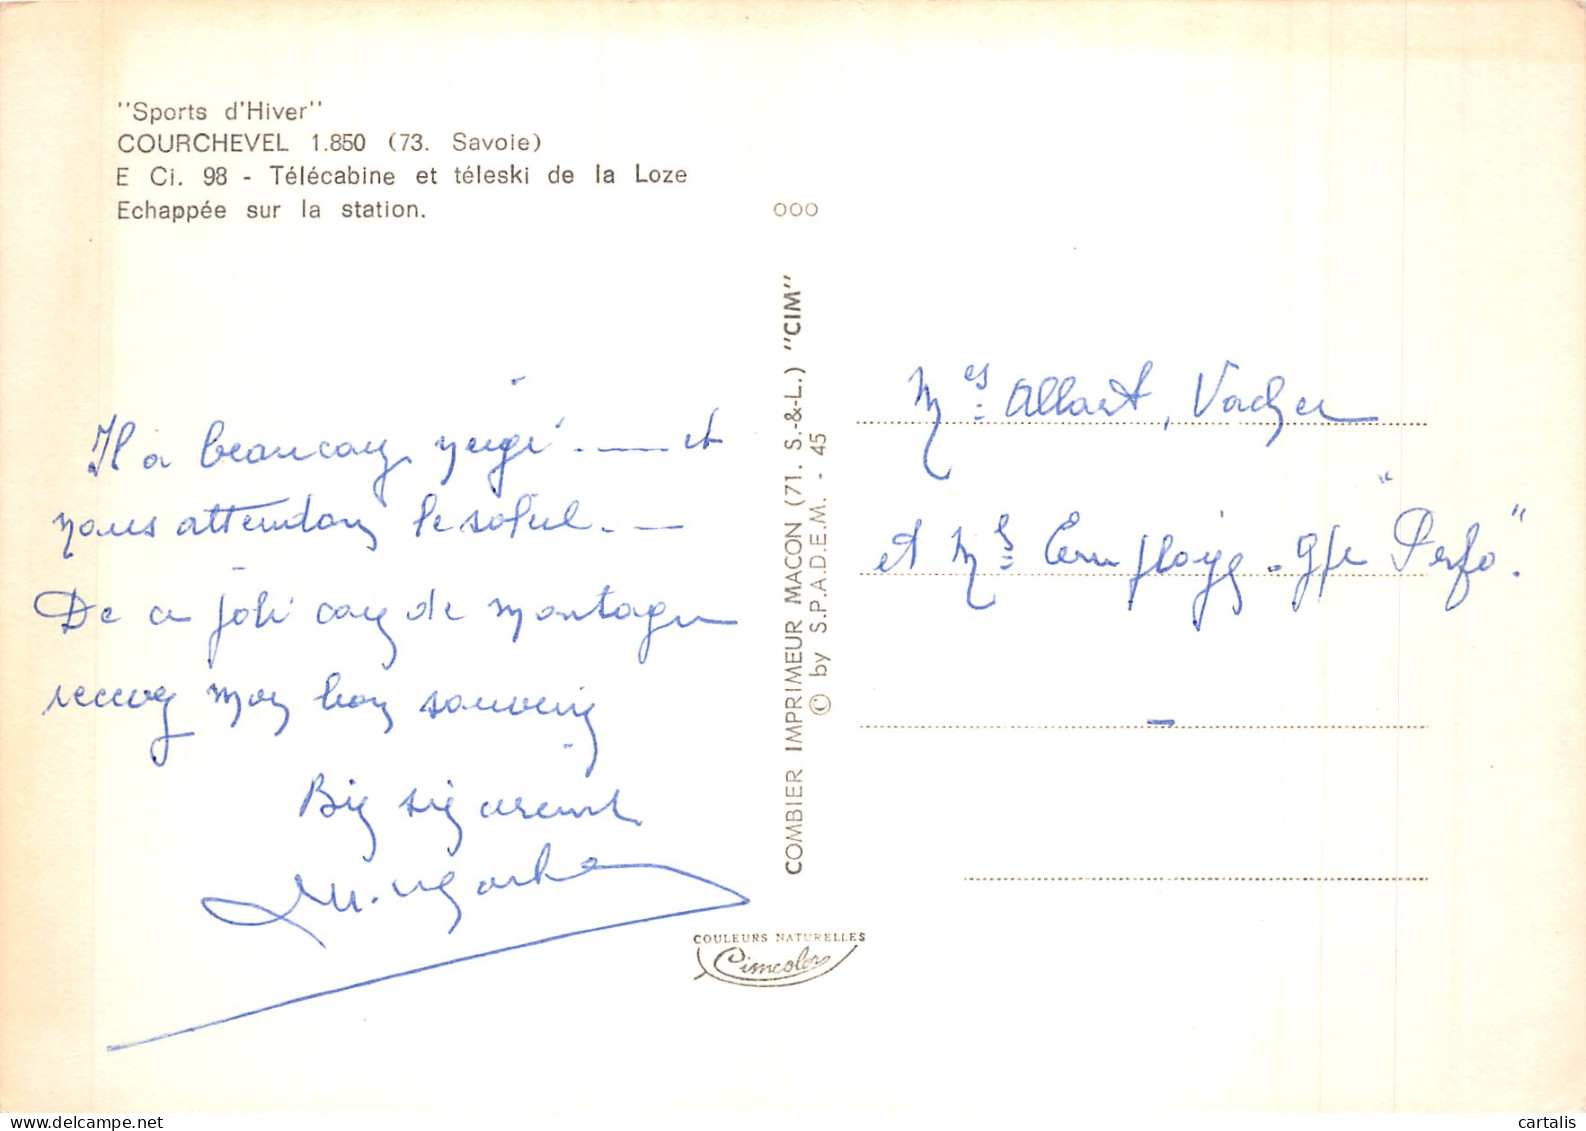 "Sports d'Hiver"
COURCHEVEL 1.850 (73. Savoie)
E Ci. 98 - Télécabine et téleski de la Loze
Echappée sur la station.
Il a beaucoup neigé. — et
nous attendons le soleil. —
De ce joli coin de montagne
recevez mon bon souvenir
Bien sincèrement
COMBIER IMPRIMEUR MACON (71. S.-&-L.) "CIM"
© by S.P.A.D.E.M. - 45
OOO
COULEURS NATURELLES
Cimcolor
Mes Allart, Vacher
et Ms Employés - Gpe "Perfo".
delcampe.net
cartalis